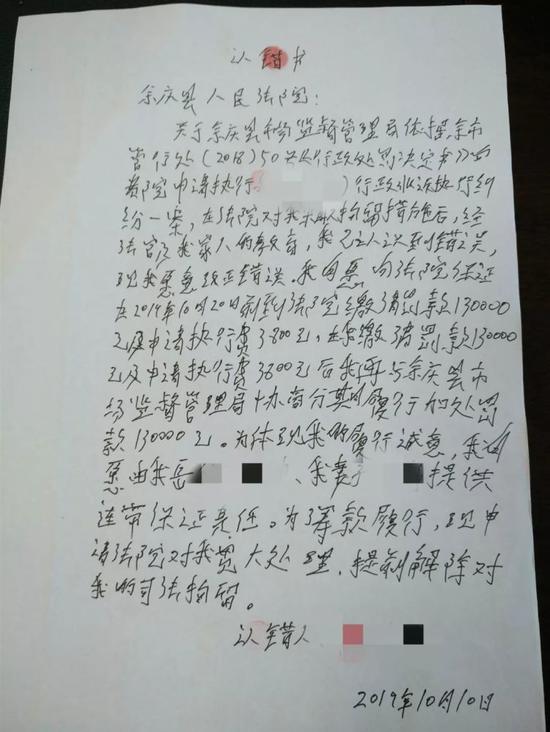 认错书
余庆县人民法院：
关于余庆县市场监督管理局依据余市
监行处（2018）50号《行政处罚决定书》向
贵院申请执行 ）行政非诉执行纠
纷一案，在法院对我采取拘留措施后，经
法官及我家人的教育，我已认识到错误，
现我愿意改正错误。我自愿向法院保证
在2019年10月20日前到法院缴清罚款130000
元及申请执行费3800元，在缴清罚款130000
元及申请执行费3800元后我再与余庆县市
场监督管理局协商分期履行加处罚
款130000元。为体现我的履行诚意，我自
愿由我岳 、我妻子 提供
连带保证责任。为筹款履行，现申
请法院对我宽大处理，提前解除对
我的司法拘留。
认错人
2019年10月10日